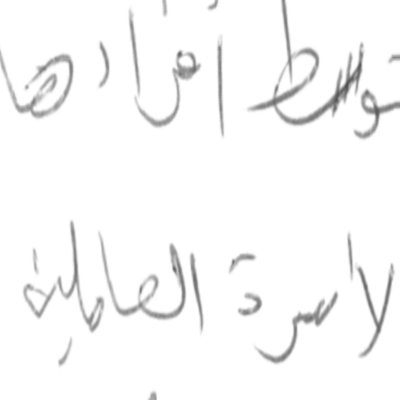 توسط أفرادها
لأسرة العاملية